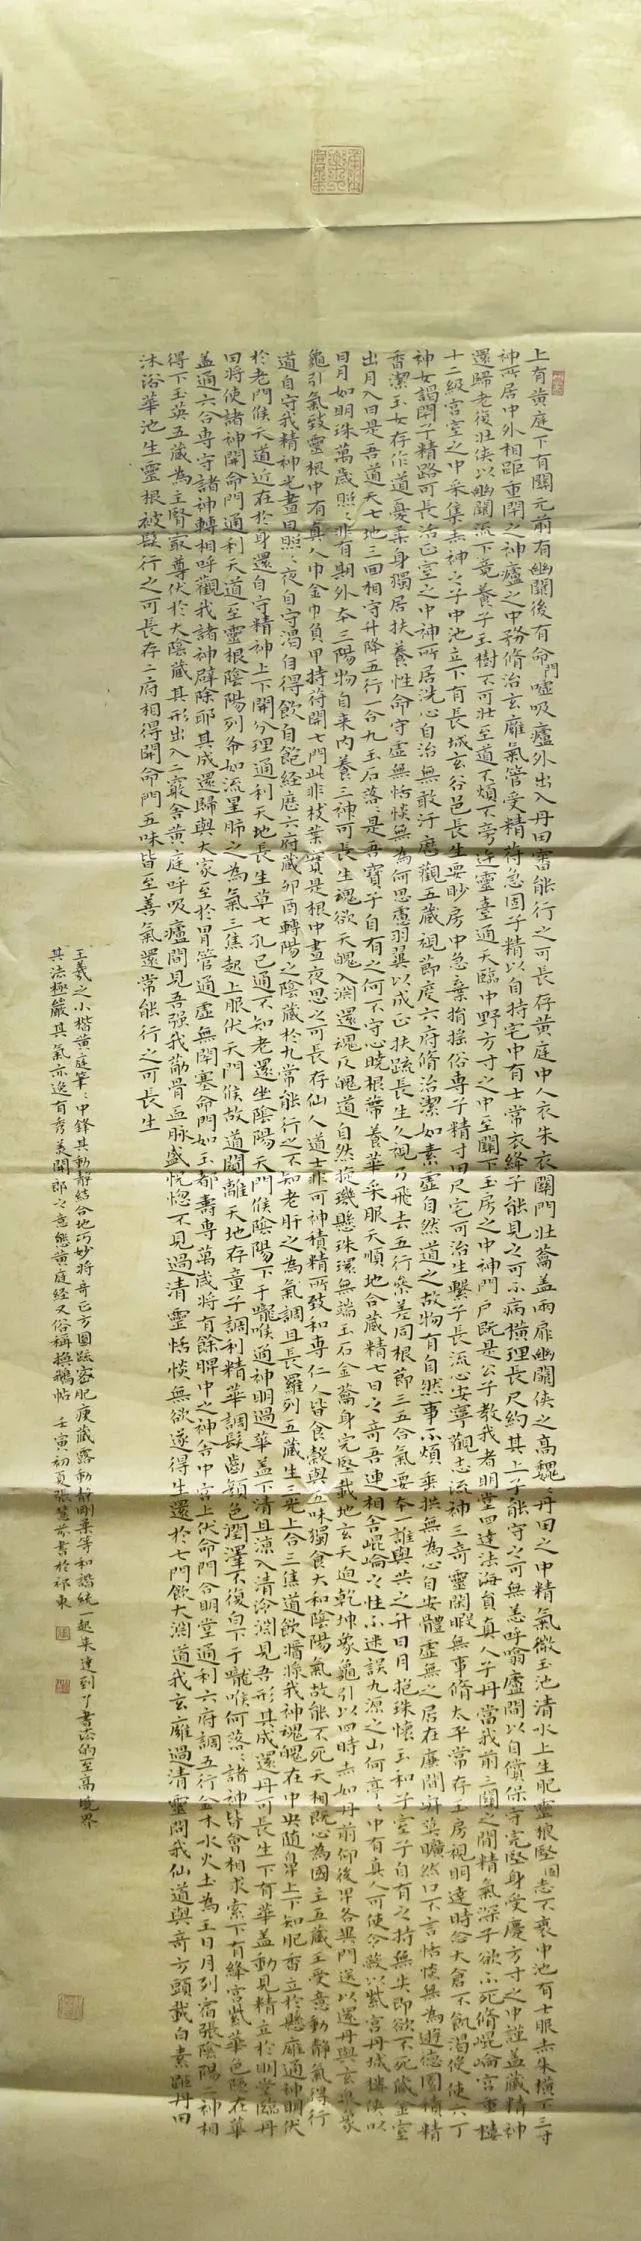 上有黄庭下有關元前有幽闕後有命門噓吸廬外出入丹田審能行之可長存黄庭中人衣朱衣關門壯蘥盖兩扉幽闕俠之高魏魏丹田之中精氣微玉池清水上生肥靈根堅固志不衰中池有士服赤朱横下三寸
神所居中外相距重閇之神廬之中務脩治玄廱氣管受精符急固子精以自持宅中有士常衣絳子能見之可不病横理長尺約其上子能守之可無恙呼噏廬間以自償保守完堅身受慶方寸之中謹盖藏精神
還歸老復壯俠以幽闕流下竟養子玉樹不可壯至道不煩不旁迕靈臺通天臨中野方寸之中至關下玉房之中神門户既是公子教我者明堂四達法海負真人子丹當我前三關之間精氣深子欲不死脩崐崘宫重樓
十二級宫室之中采集赤神之子中池立下有長城玄谷邑長生要眇房中急棄捐揺俗専子精寸田尺宅可治生繫子長流心安寧觀志流神三奇靈閑暇無事脩太平常存玉房視明達時念大倉不飢渴使六丁
神女謁閇子精路可長活正室之中神所居洗心自治無敢汙歷觀五藏視節度六府脩治潔如素虚自然道之故物有自然事不煩垂拱無為心自安體虚無之居在廉間寂莫曠然口不言恬惔無為遊德園積精
香潔玉女存作道憂柔身獨居扶養性命守虚無恬惔無為何思慮羽翼以成正扶疏長生久視乃飛去五行參差同根節三五合氣要本一誰與共之升日月抱珠懷玉和子室子自有之持無失即欲不死藏金室
出月入日是吾道天七地三回相守升降五行一合九玉石落落是吾寶子自有之何不守心曉根蔕養華采服天順地合藏精七日之奇吾連相舍崐崘之性不迷誤九源之山何亭亭中有真人可使令蔽以紫宫丹城樓俠以
日月如明珠萬歳照照非有期外本三陽物自来内養三神可長生魂欲天魄入淵還魂反魄道自然㨁璣懸珠環無端玉石金蘥身完堅載地玄天迫乾坤象龜引以四時赤如丹前仰後卑各異門送以還丹與玄泉象
龜引氣致靈根中有真人巾金巾負甲持符開七門此非枝葉實是根中晝夜思之可長存仙人道士非可神積精所致和専仁人皆食穀與五味獨食大和陰陽氣故能不死天相既心為國主五藏王受意動静氣得行
道自守我精神光晝日照照夜自守渴自得飲自飽經歷六府藏卯酉轉陽之陰藏於九常能行之不知老肝之為氣調且長羅列五藏生三光上合三焦道飲醬漿我神魂魄在中央随鼻上下知肥香立於懸廱通神明伏
於老門候天道近在於身還自守精神上下開分理通利天地長生草七孔已通不知老還坐陰陽天門候陰陽下于嚨喉通神明過華盖下清且凉入清泠淵見吾形其成還丹可長生下有華盖動見精立於明堂臨丹
田将使諸神開命門通利天道至靈根陰陽列布如流星肺之為氣三焦起上服伏天門候故道闚離天地存童子調利精華調髮齒顔色潤澤不復白下于嚨喉何落落諸神皆會相求索下有絳宫紫華色隱在華
盖通六合専守諸神轉相呼觀我諸神辟除耶其成還歸與大家至於胃管通虚無閇塞命門如玉都壽専萬歳将有餘脾中之神舍中宫上伏命門合明堂通利六府調五行金木水火土為王日月列宿張陰陽二神相
得下玉英五藏為主腎最尊伏於大陰藏其形出入二竅舍黄庭呼吸廬間見吾强我筋骨血脉盛恍惚不見過清靈恬惔無欲遂得生還於七門飲大淵道我玄廱過清靈問我仙道與奇方頭載白素距丹田
沐浴華池生靈根被髮行之可長存二府相得開命門五味皆至善氣還常能行之可長生
王羲之小楷黄庭筆筆中鋒其動静結合地巧妙将奇正方圓疏密肥瘦藏露動静剛柔等和諧統一起来達到了書法的至高境界
其法極嚴其氣亦逸有秀美開朗之意態黄庭经又俗稱換鵝帖 壬寅初夏張慧芬書於祁東